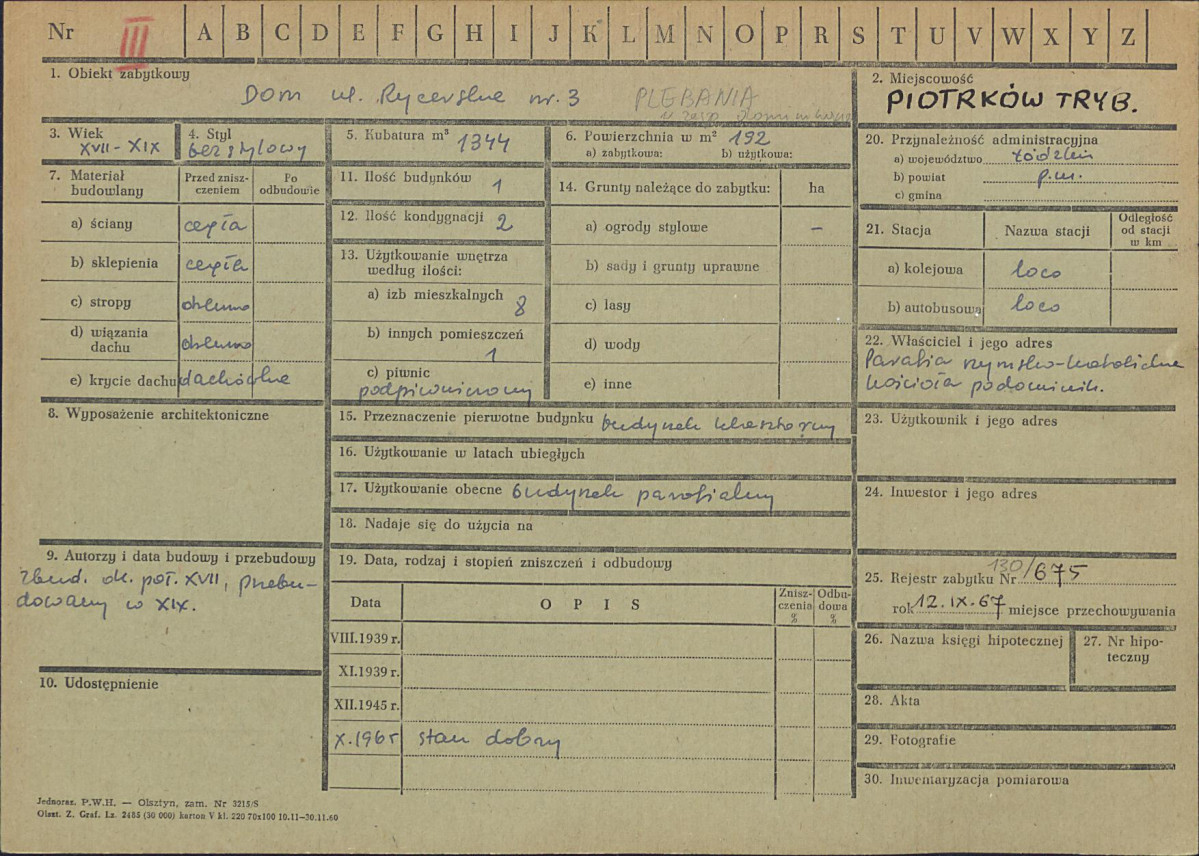 Nr III A B C D E F G H I J K L M N O P R S T U V W X Y Z
1. Obiekt zabytkowy
Dom ul. Rycerska nr. 3 PLEBANIA
2. Miejscowość
PIOTRKÓW TRYB.
3. Wiek
XVII - XIX
4. Styl
bezstylowy
5. Kubatura m³ 1344
6. Powierzchnia w m² 192
a) zabytkowa: b) użytkowa:
7. Materiał budowlany
Przed znisz-
czeniem
Po
odbudowie
a) ściany cegła
b) sklepienia cegła
c) stropy drewno
d) wiązania
dachu drewno
e) krycie dachu dachówka
8. Wyposażenie architektoniczne
9. Autorzy i data budowy i przebudowy
zbud. ok. poł. XVII, przebu-
dowany w XIX.
10. Udostępnienie
11. Ilość budynków 1
12. Ilość kondygnacji 2
13. Użytkowanie wnętrza
według ilości:
a) izb mieszkalnych 8
b) innych pomieszczeń
1
c) piwnic
podpiwniczony
14. Grunty należące do zabytku: ha
a) ogrody stylowe -
b) sady i grunty uprawne
c) lasy
d) wody
e) inne
15. Przeznaczenie pierwotne budynku budynek klasztorny
16. Użytkowanie w latach ubiegłych
17. Użytkowanie obecne budynek parafialny
18. Nadaje się do użycia na
19. Data, rodzaj i stopień zniszczeń i odbudowy
Data O P I S
Znisz-
czenia
%
Odbu-
dowa
%
VIII.1939 r.
XI.1939 r.
XII.1945 r.
X.1965 stan dobry
20. Przynależność administracyjna
a) województwo łódzkie
b) powiat p.m.
c) gmina
21. Stacja Nazwa stacji
Odległość
od stacji
w km
a) kolejowa loco
b) autobusowa loco
22. Właściciel i jego adres
Parafia rzymsko-katolicka
kościoła podominik.
23. Użytkownik i jego adres
24. Inwestor i jego adres
25. Rejestr zabytku Nr 130/675
rok 12.IX.67 miejsce przechowywania
26. Nazwa księgi hipotecznej
27. Nr hipo-
teczny
28. Akta
29. Fotografie
30. Inwentaryzacja pomiarowa
Jednoraz. P.W.H. — Olsztyn, zam. Nr 3215/S
Olszt. Z. Graf. Lz. 2485 (30 000) karton V kl. 220 70x100 10.11—30.11.60